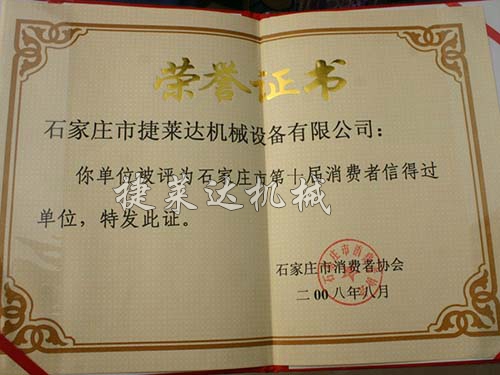 荣誉证书
石家庄市捷莱达机械设备有限公司：
你单位被评为石家庄市第十届消费者信得过
捷莱达机械
单位，特发此证。
石家庄市消费者协会
二00八年八月